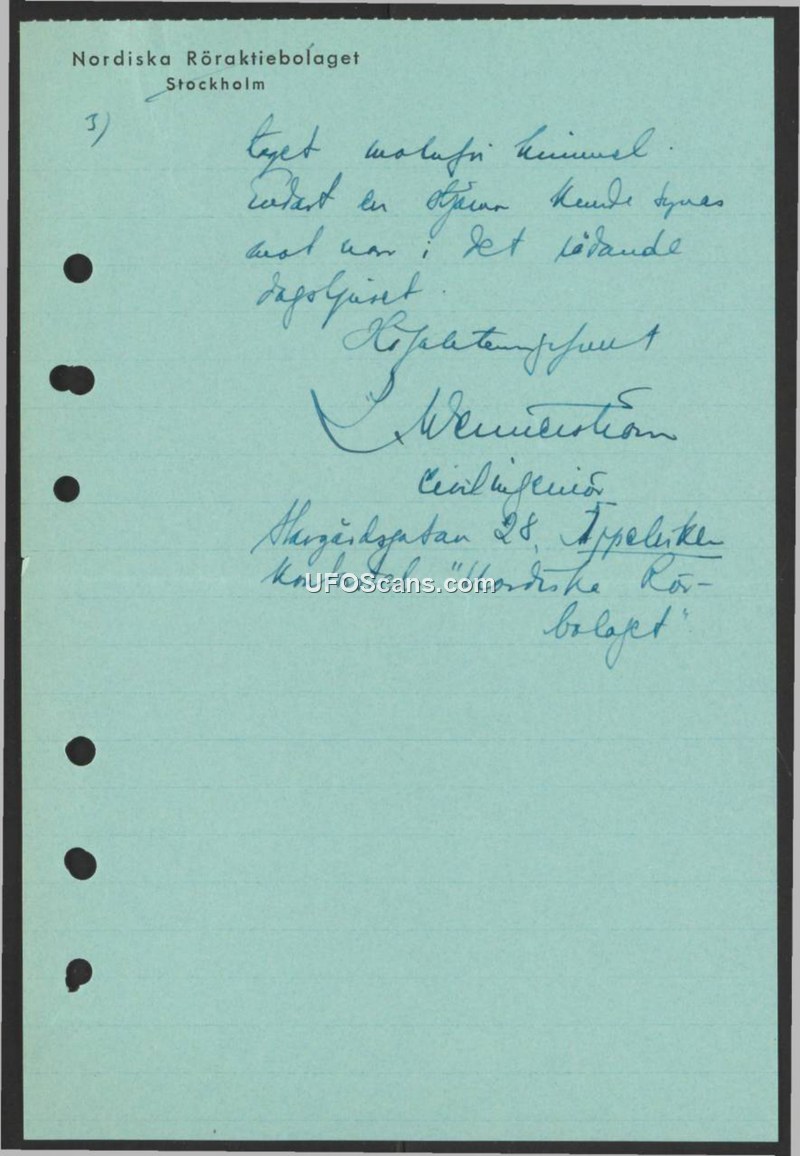 Nordiska Röraktiebolaget
Stockholm
3)
taget molnfri himmel.
Endast en stjärna kunde synas
mot norr i det rådande
dagsljuset.
Högaktningsfullt
Wennerström
Civilingeniör
28, Äppelviken
Kontoret "Nordiska Rör-
bolaget"
UFOScans.com